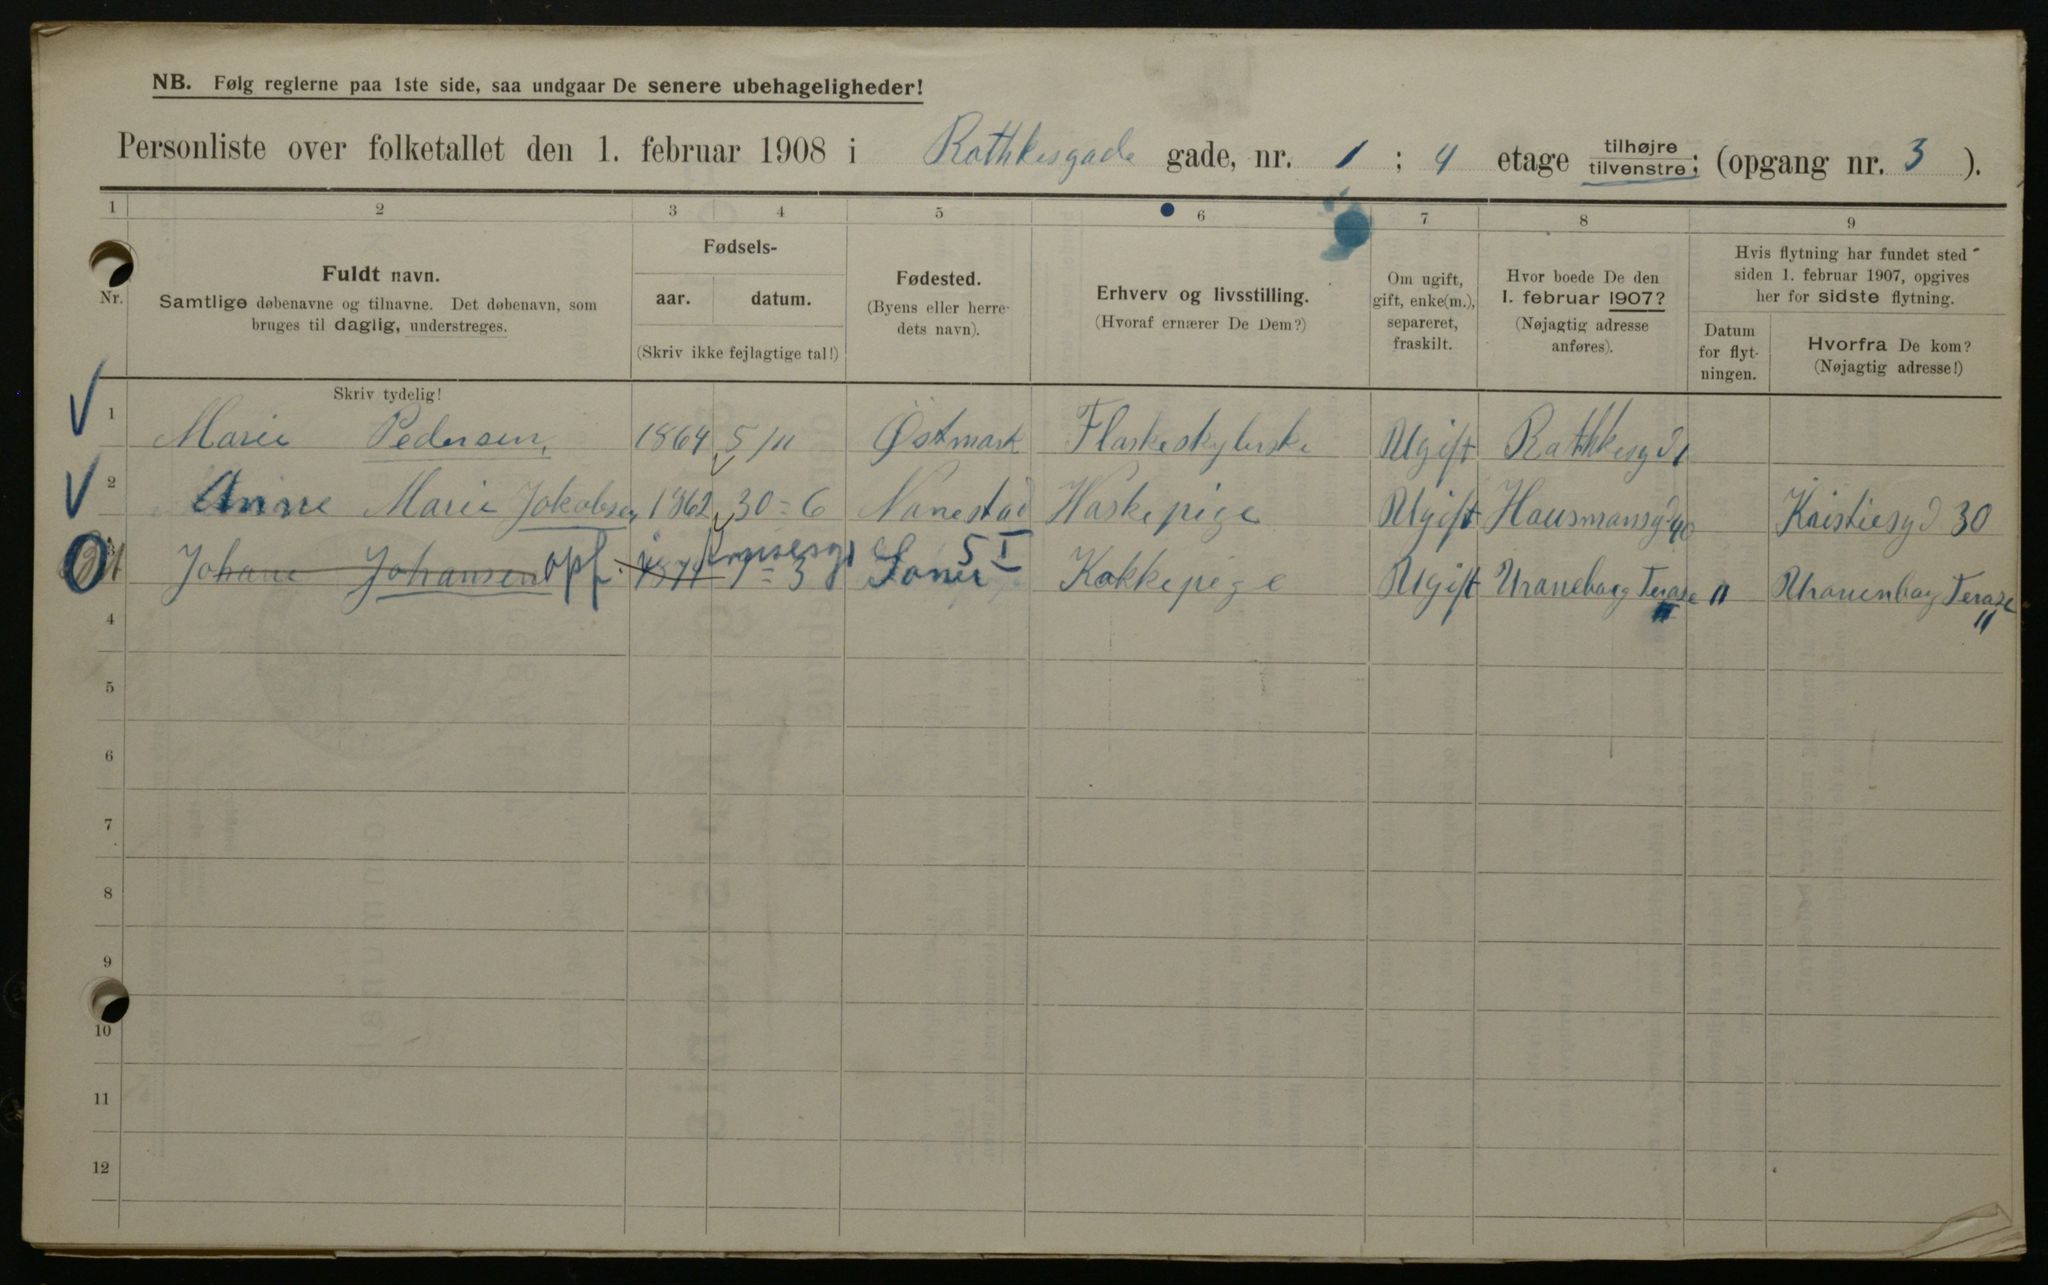 NB. Følg reglerne paa 1ste side, saa undgaar De senere ubehageligheder!
Personliste over folketallet den 1. februar 1908 i Rathkesgade gade, nr. 1 ; 4 etage tilhøjre tilvenstre; (opgang nr. 3 ).
1 2 3 4 5 6 7 8 9
Nr.
Fuldt navn.
Samtlige døbenavne og tilnavne. Det døbenavn, som
bruges til daglig, understreges.
Skriv tydelig!
Fødsels-
aar. datum.
(Skriv ikke fejlagtige tal!)
Fødested.
(Byens eller herre-
dets navn).
Erhverv og livsstilling.
(Hvoraf ernærer De Dem?)
Om ugift,
gift, enke(m.),
separeret,
fraskilt.
Hvor boede De den
1. februar 1907?
(Nøjagtig adresse
anføres).
Hvis flytning har fundet sted
siden 1. februar 1907, opgives
her for sidste flytning.
Datum
for flyt-
ningen.
Hvorfra De kom?
(Nøjagtig adresse!)
1 Marie Pedersen, 1864 5/11 Østmark Flaskeskylerske Ugift Rathkesgd 1
2 Anne Marie Jokobsen 1862 30=6 Nanestad Waskepige Ugift Hausmansgd 40 Kristiesgd 30
3 Johane Johansen opf. Krusesgt 5 I 1871 1=3 Soner Kokkepige Ugift Uraneborg Terase 11 Uranenborg Terase 11
4
5
6
7
8
9
10
11
12